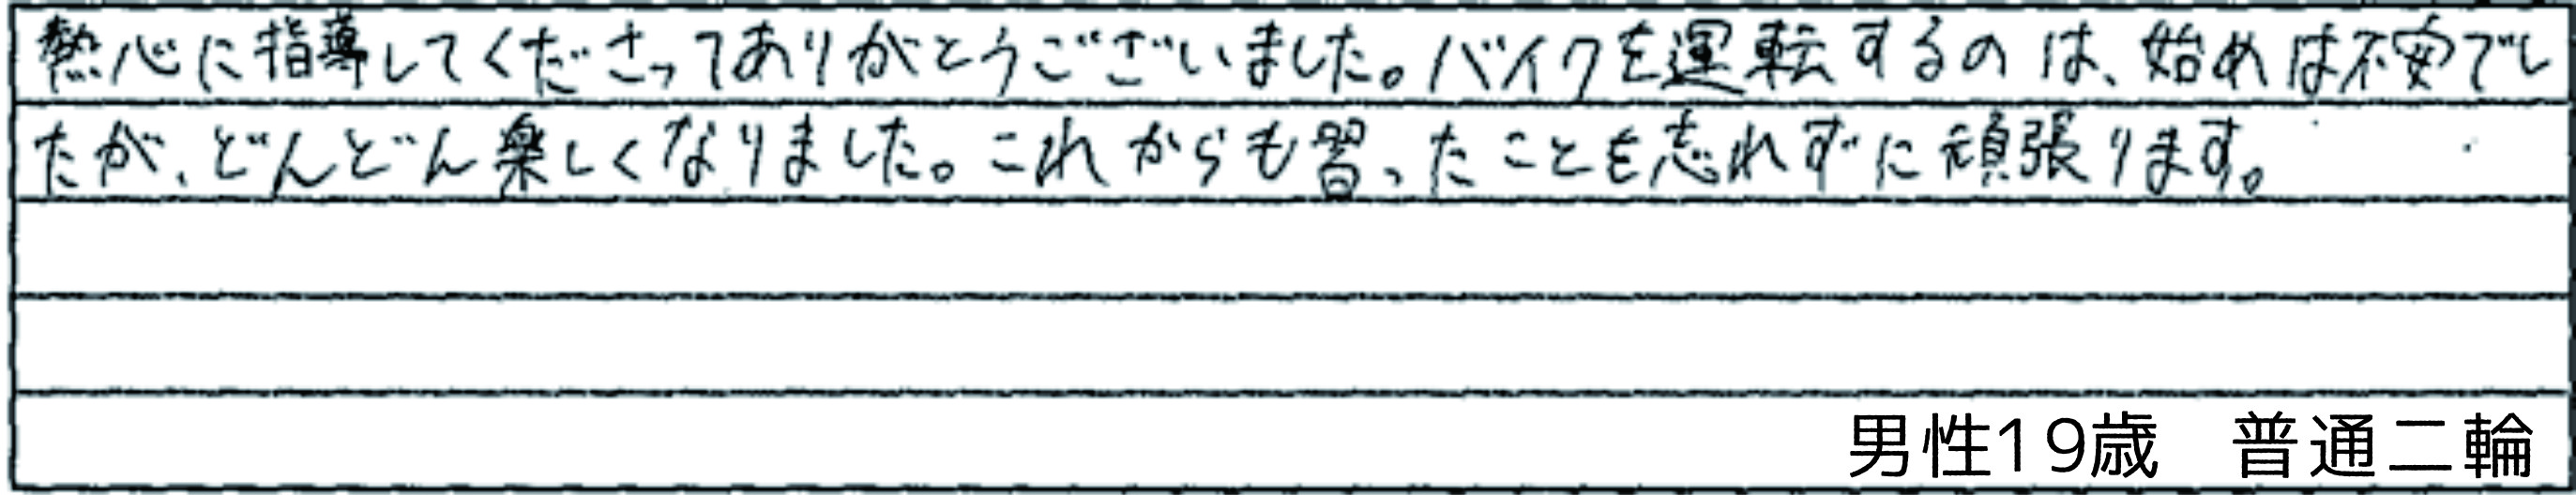 熱心に指導してくださってありがとうございました。バイクを運転するのは、始めは不安でし
たが、どんどん楽しくなりました。これからも習ったことを忘れずに頑張ります。
男性19歳 普通二輪